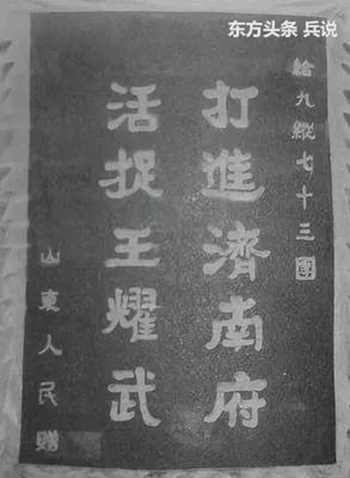 东方头条 兵说
給九縱七十三團
打進濟南府
活捉王耀武
山東人民贈